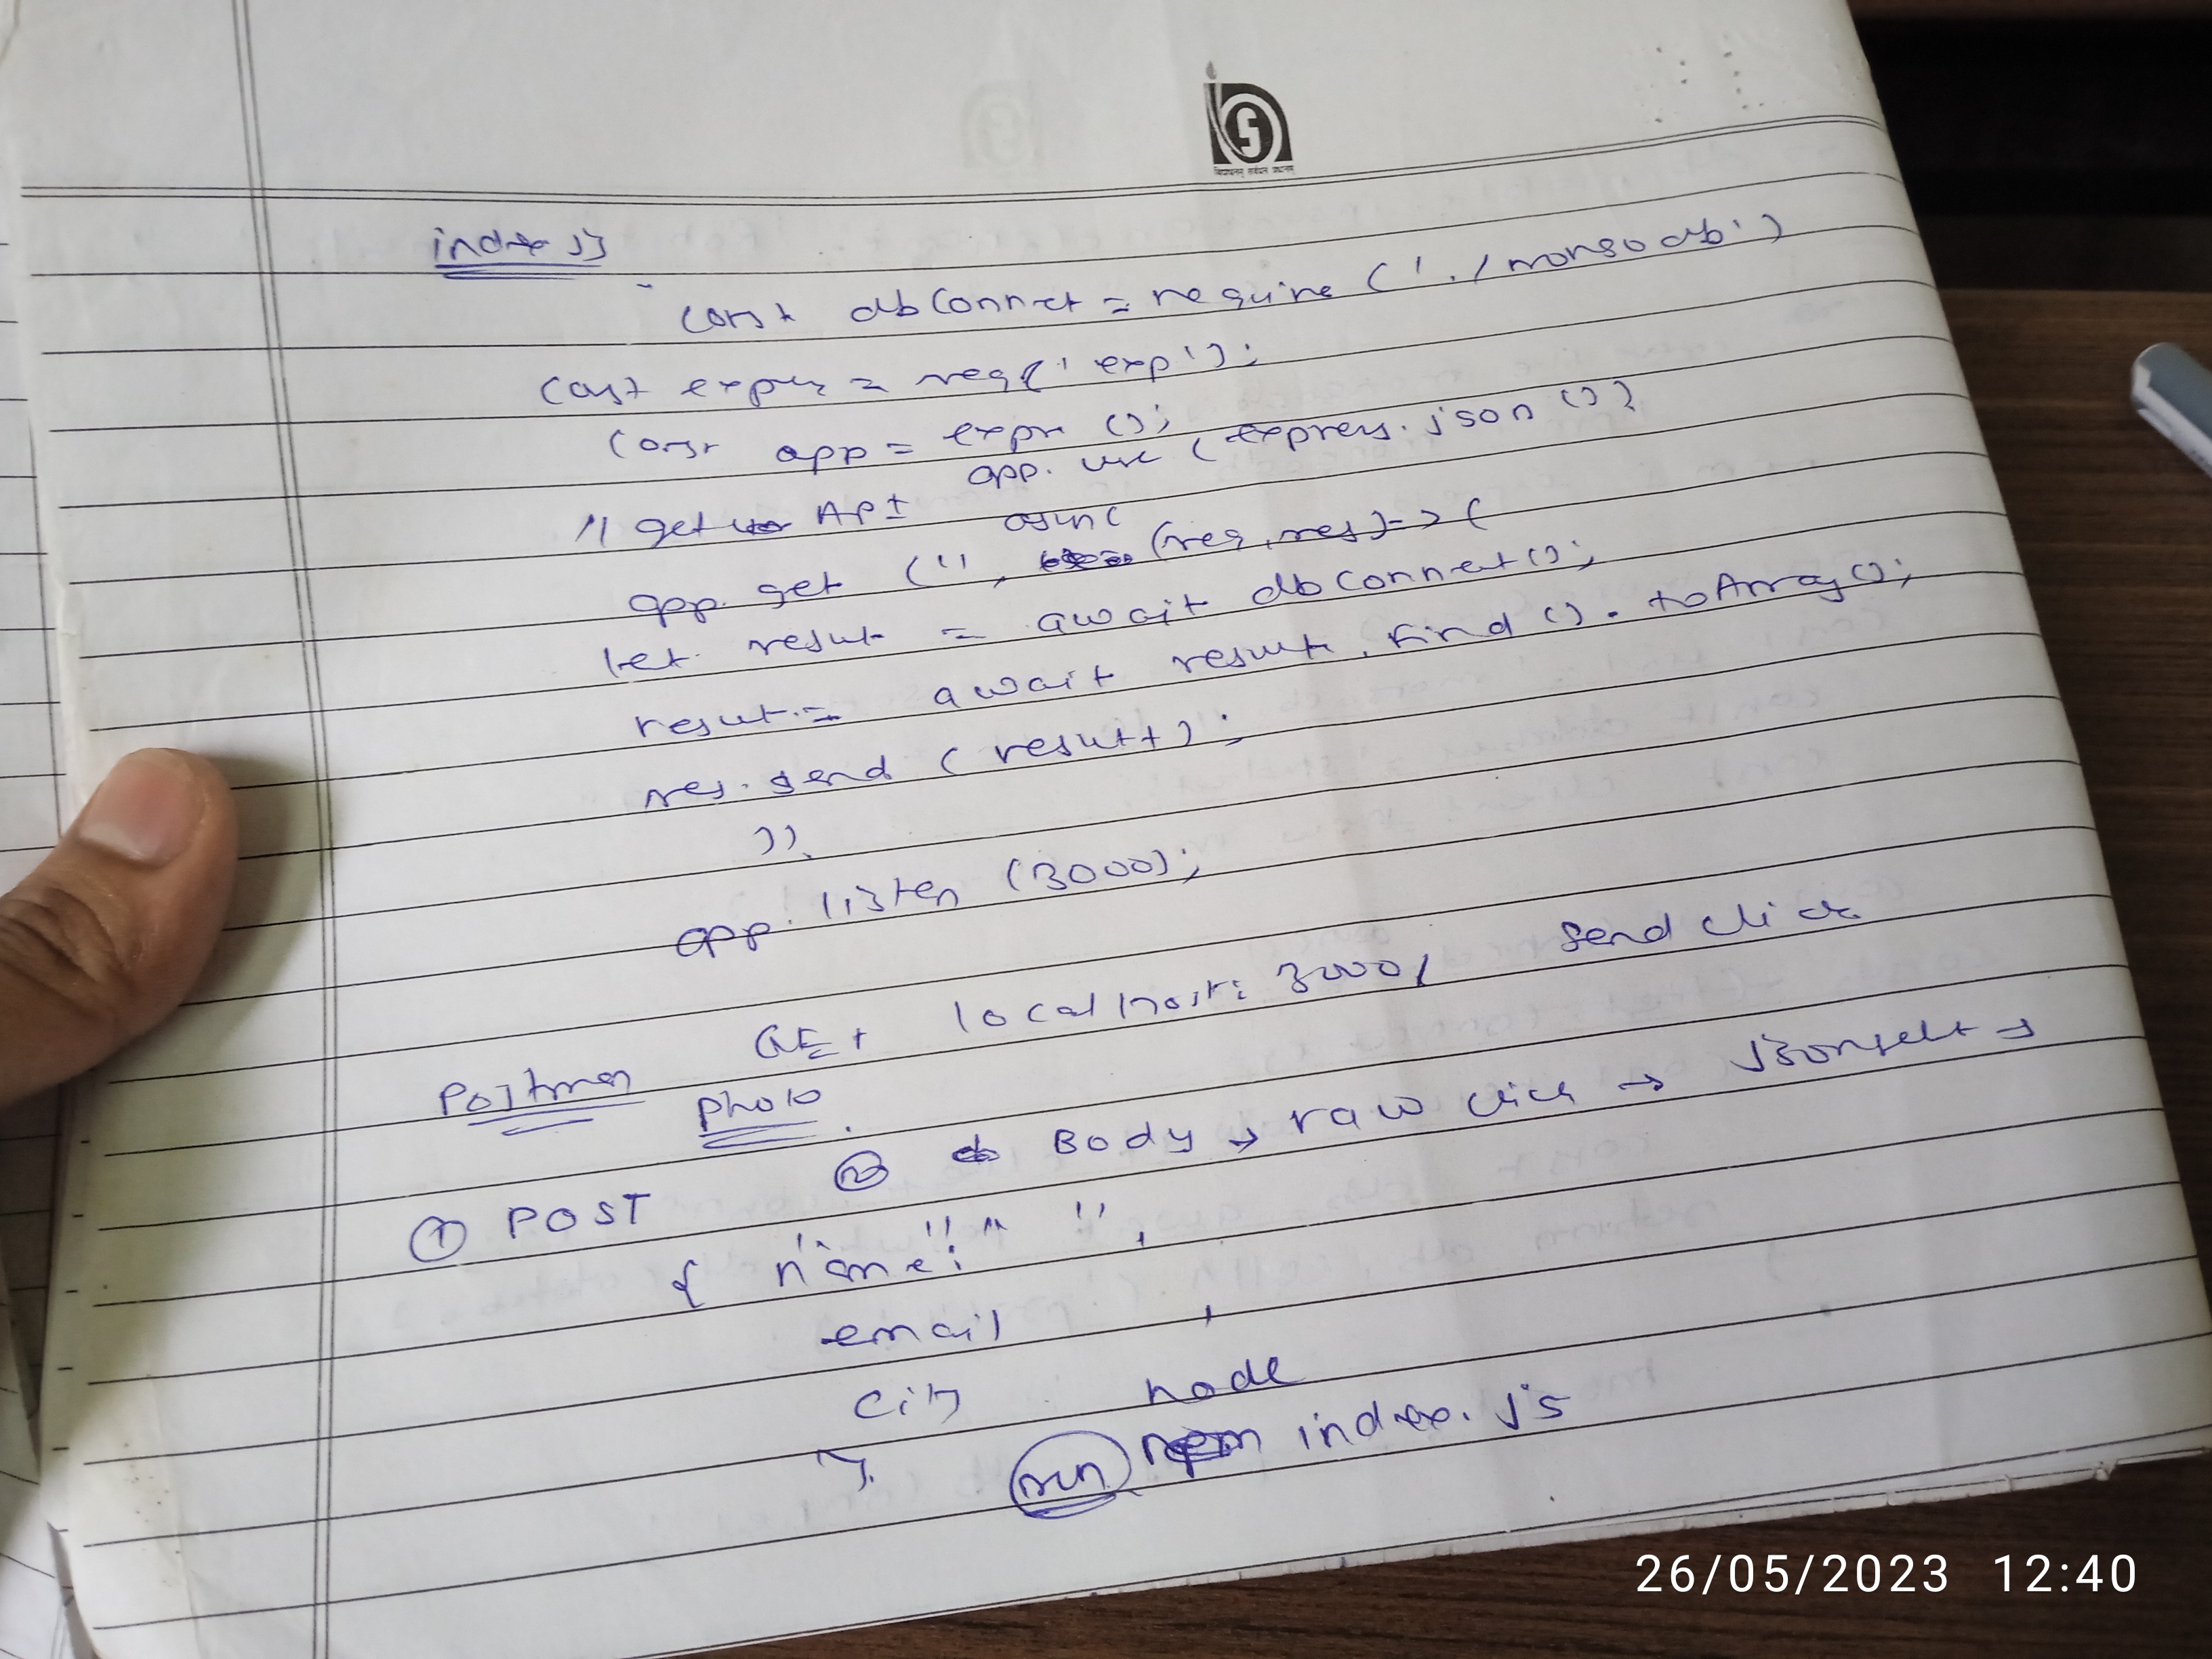 index js
const dbConnet = require ('./mongodb')
const expres = req('exp');
const app = expr ();
app. use (express.json ())
// get API
async
app. get ('', (req, res) => (
let result = await dbConnect();
result = await result. find (). toArray();
res. send (result);
));
app. listen (3000);
GET localhost: 3000/ send click
Postman
photo
② Body → raw click → json select →
① POST
{ "name": " ",
email ,
city
}.
node
run index. js
26/05/2023 12:40